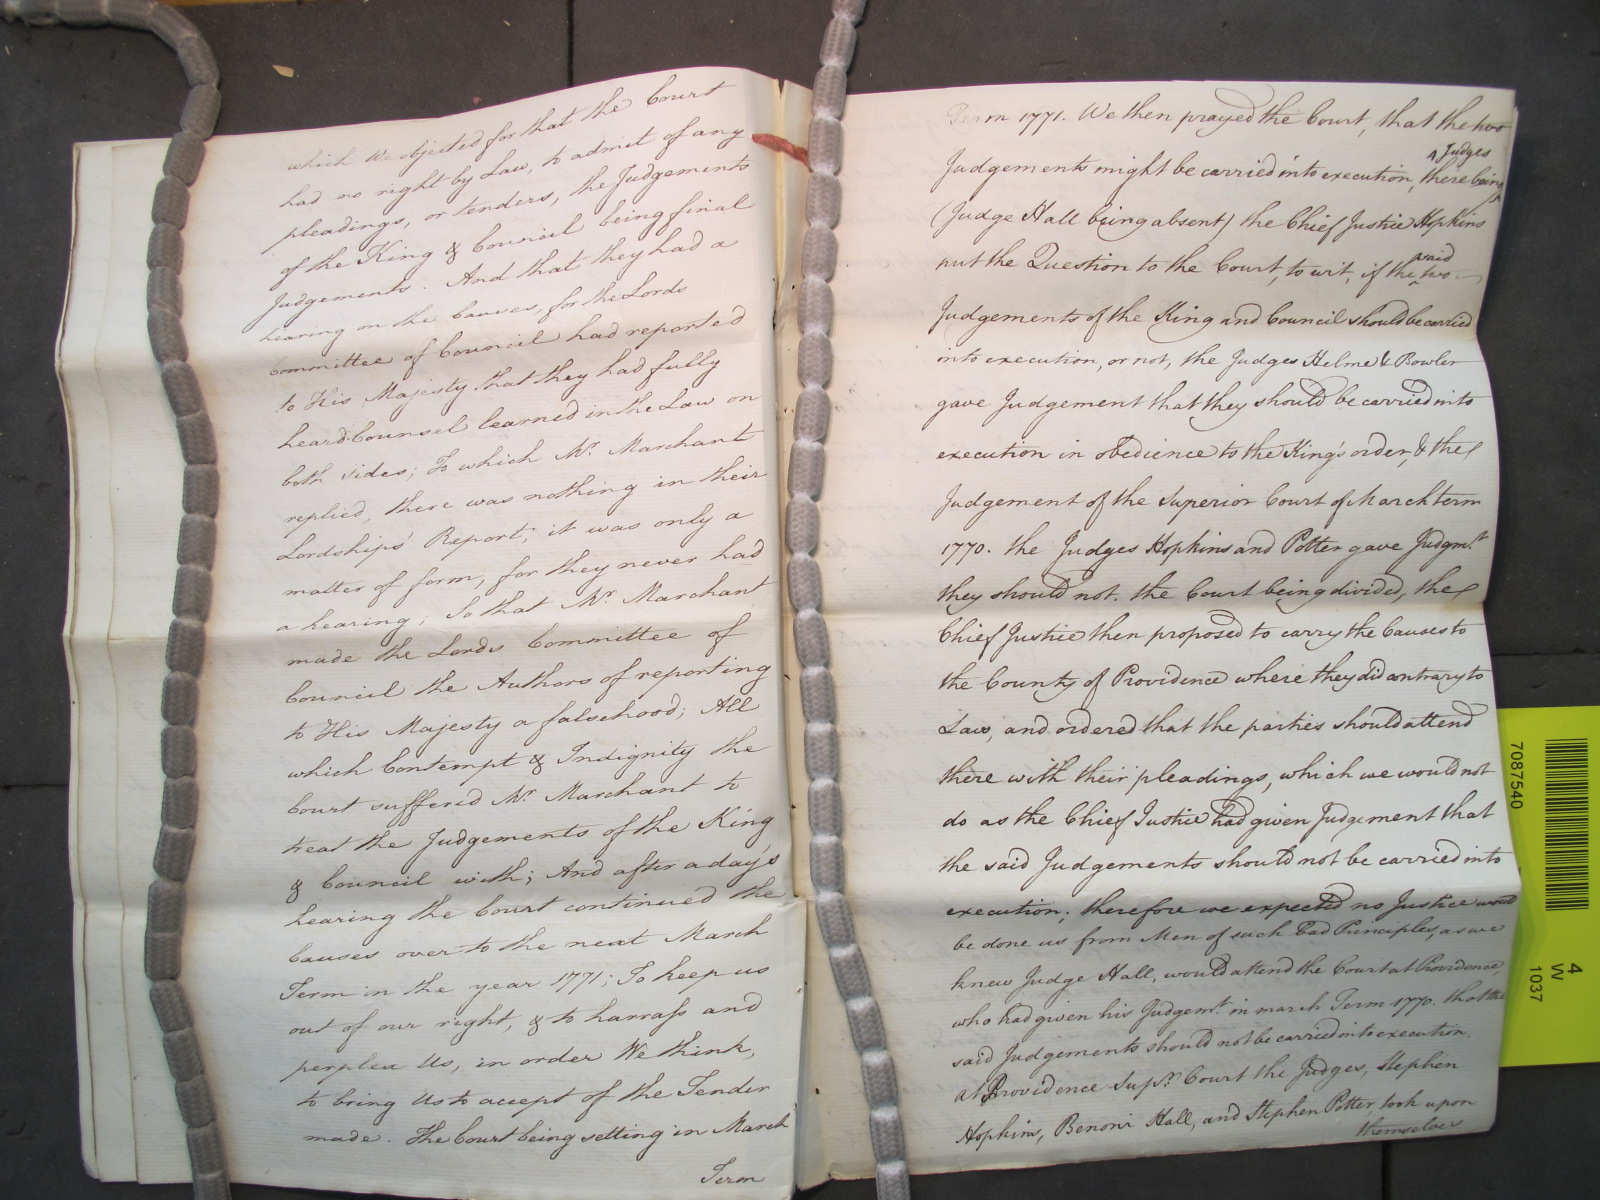 which We objected for that the Court
had no right by Law, to admit of any
pleadings, or tenders, the Judgements
of the King & Council being final
Judgements. And that they had a
hearing on the Causes, for the Lords
Committee of Council had reported
to His Majesty that they had fully
heard Counsel learned in the Law on
both sides; To which Mr. Marchant
replied, there was nothing in their
Lordships' Report; it was only a
matter of form, for they never had
a hearing; So that Mr. Marchant
made the Lords Committee of
Council the Authors of reporting
to His Majesty a falsehood; All
which Contempt & Indignity the
Court suffered Mr. Marchant to
treat the Judgements of the King
& Council with; And after a day's
hearing the Court continued the
Causes over to the next March
Term in the year 1771; To keep us
out of our right, & to harrass and
perplex Us, in order We think,
to bring Us to accept of the Tender
made. The Court being setting in March
Term
Term 1771. We then prayed the Court, that the two
Judges
Judgements might be carried into execution, there being
(Judge Hall being absent) the Chief Justice Hopkins
put the Question to the Court, to wit, if the said two
Judgements of the King and Council should be carried
into execution, or not, the Judges Helme & Bowler
gave Judgement that they should be carried into
execution in obedience to the King's order, & the
Judgement of the Superior Court of March term
1770. the Judges Hopkins and Potter gave Judgmt.
they should not. the Court being divided, the
Chief Justice then proposed to carry the Causes to
the County of Providence where they did contrary to
Law, and ordered that the parties should attend
there with their pleadings, which we would not
do as the Chief Justice had given Judgement that
the said Judgements should not be carried into
execution; therefore we expected no Justice would
be done us from Men of such bad Principles, as we
knew Judge Hall, would attend the Court at Providence,
who had given his Judgemt. in march Term 1770. that the
said Judgements should not be carried into execution.
at Providence Supr. Court the Judges, Stephen
Hopkins, Benoni Hall, and Stephen Potter, took upon
themselves
7087540
4
W
1037